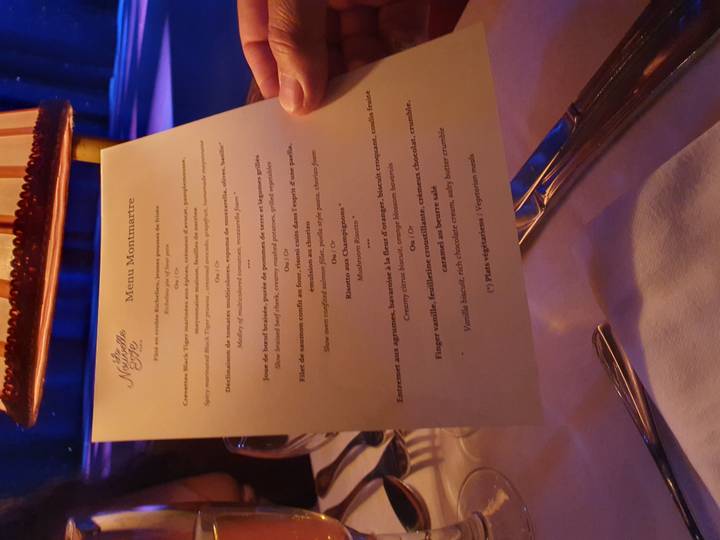 La
Nouvelle
Eve
Menu Montmartre
Pâté en croûte Richelieu, jeunes pousses de frisée
Richelieu pie of
Ou / Or
Crevettes Black Tiger marinées aux épices, crémeux d'avocat, pamplemousse,
mayonnaise maison, feuilles de
Spicy marinated Black Tiger prawns, creamed avocado, grapefruit, homemade mayonnaise
Ou / Or
Déclinaison de tomates multicolores, espuma de mozzarella, olives, basilic*
Medley of multicolored tomatoes, mozzarella foam *
***
Joue de bœuf braisée, purée de pommes de terre et légumes grillés
Slow braised beef cheek, creamy mashed potatoes, grilled vegetables
Ou / Or
Filet de saumon confit au four, rizoni cuits dans l'esprit d'une paella,
émulsion au chorizo
Slow oven confited salmon fillet, paella style pasta, chorizo foam
Ou / Or
Risotto aux Champignons *
Mushroom Risotto *
***
Entremet aux agrumes, bavaroise à la fleur d'oranger, biscuit croquant, coulis fruité
Creamy citrus biscuit, orange blossom bavarois
Ou / Or
Finger vanille, feuilletine croustillante, crémeux chocolat, crumble,
caramel au beurre salé
Vanilla biscuit, rich chocolate cream, salty butter crumble
(*) Plats végétariens / Vegetarian meals